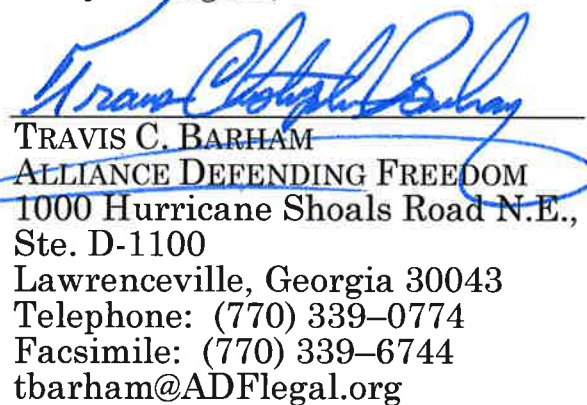 Travis Christopher Barham
TRAVIS C. BARHAM
ALLIANCE DEFENDING FREEDOM
1000 Hurricane Shoals Road N.E.,
Ste. D-1100
Lawrenceville, Georgia 30043
Telephone: (770) 339–0774
Facsimile: (770) 339–6744
tbarham@ADFlegal.org